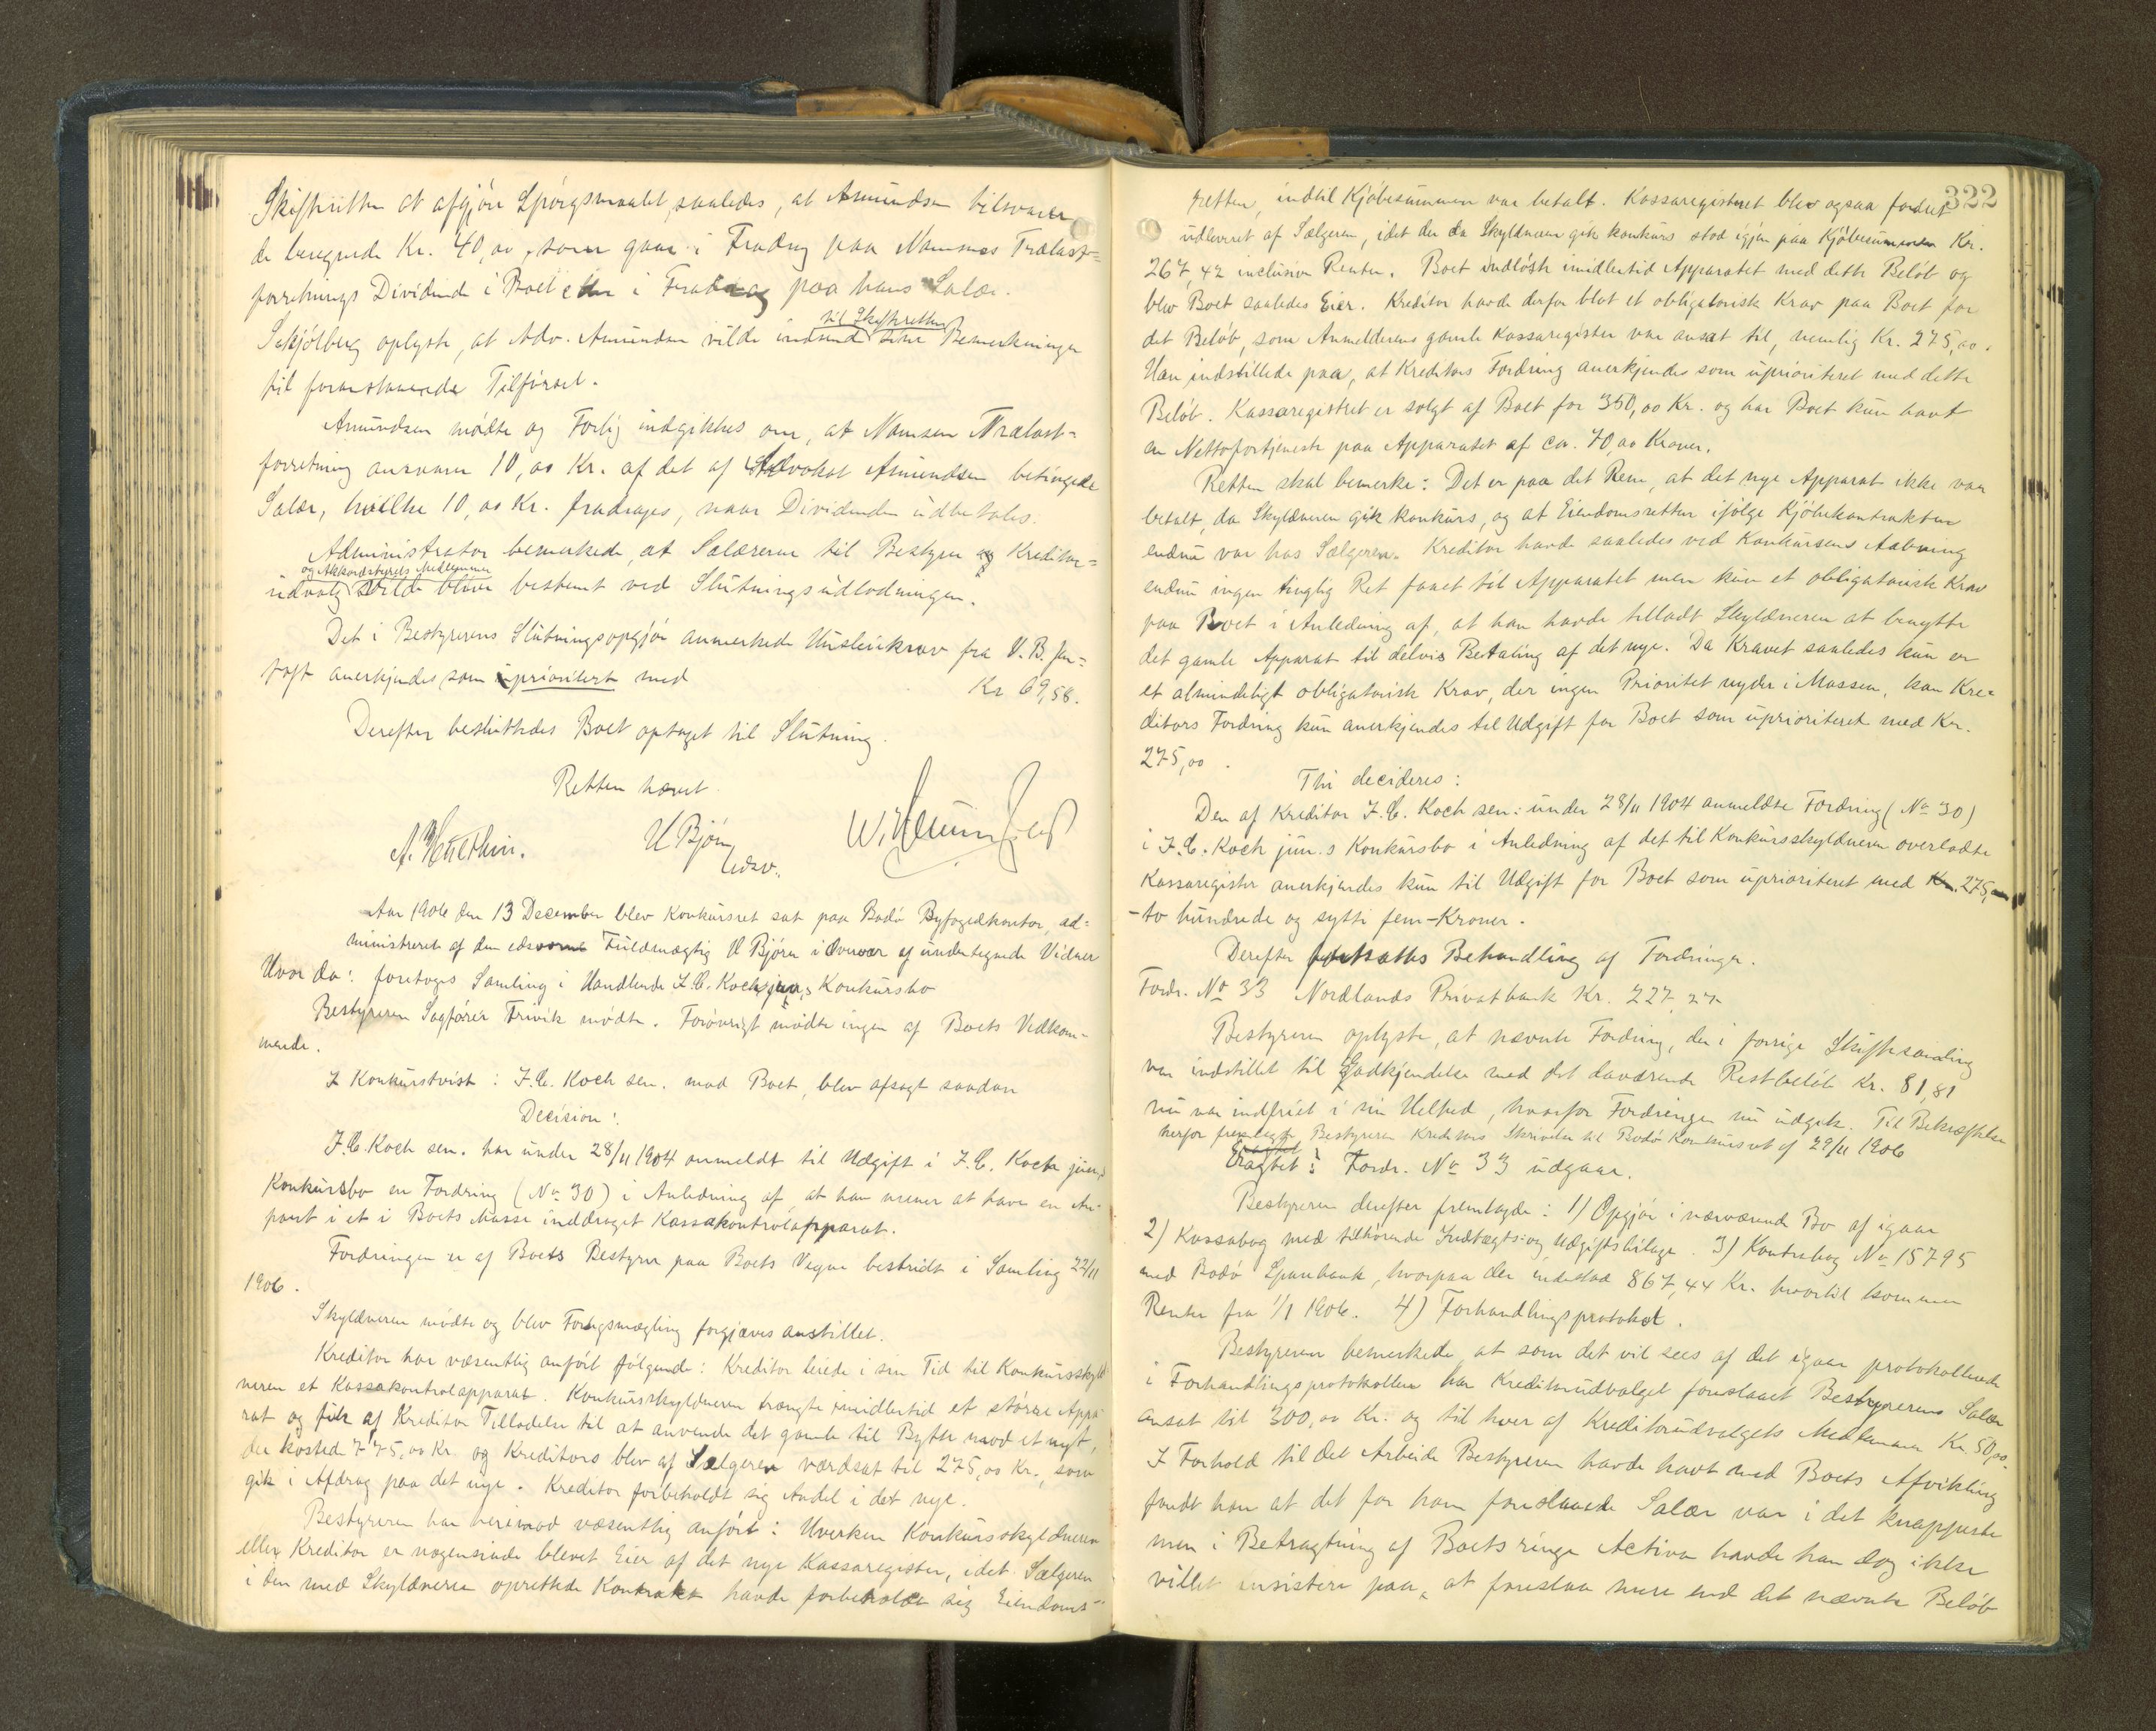 Skifteretten at afgjöre Spörgsmaalet saaledes, at Amundsen tilsvarer
de beregnede Kr. 40,00, som gaar i Fradrag paa Namsens Trælast-
forretnings Dividende i Boet eller i Fradrag paa hans Salær.
Skjölberg oplyste, at Adv. Amundsen vilde indsende til Skifteretten sine Bemerkninger
til foranstaaende Tilförsel.
Amundsen mödte og Forlig indgikkes om, at Namsen Trælast-
forretning ansvarer 10,00 Kr. af det af Advokat Amundsen betingede
Salær, hvilke 10,00 Kr. fradrages, naar Dividenden udbetales.
Administrator bemerkede, at Salærerne til Bestyrer og Kreditor-
udvalg og Akkordstyrets Medlemmer vilde blive bestemt ved Slutningsudlodningen.
Det i Bestyrerens Slutningsopgjör anmerkede Huslejekrav fra V. B. Jen-
toft anerkjendes som uprioritert med Kr 69,58.
Derefter besluttedes Boet optaget til Slutning.
Retten hævet.
U Bjön
edsv.
Aar 1906 den 13 December blev Konkursret sat paa Bodö Byfogedkontor, ad-
ministreret af den edsvorne Fuldmægtig U Bjön i Overvær af undertegnede Vidner
Hvor da: foretoges Samling i Handlende J. C. Koch jun.s Konkursbo
Bestyreren Sagförer Trivik mödte. Forövrigt mödte ingen af Boets Vedkom-
mende.
I Konkurstvist: J. C. Koch sen. mod Boet, blev afsagt saadan
Decision:
J. C. Koch sen. har under 28/11 1904 anmeldt til Udgift i J. C. Koch jun.s
Konkursbo en Fordring (No 30) i Anledning af at han mener at have en An-
part i et i Boets Masse inddraget Kassakontrolapparat.
Fordringen er af Boets Bestyrer paa Boets Vegne bestridt i Samling 22/11
1906.
Skyldneren mödte og blev Forligsmægling forgjæves anstillet.
Kreditor har væsentlig anfört fölgende: Kreditor leiede i sin Tid til Konkursskyld
neren et Kassakontrolapparat. Konkursskyldneren trængte imidlertid et större Appa-
rat og fik af Kreditor Tilladelse til at anvende det gamle til Bytte mod et nyt,
der kostede 775,00 Kr. og Kreditors blev af Sælgeren værdsat til 275,00 Kr., som
gik i Afdrag paa det nye. Kreditor forbeholdt sig Andel i det nye.
Bestyreren har herimod væsentlig anfört: Hverken Konkursskyldneren
eller Kreditor er nogensinde blevet Eier af det nye Kassaregister, idet Sælgeren
i den med Skyldneren oprettede Kontrakt havde forbeholdt sig Eiendoms-
322
retten, indtil Kjöbesummen var betalt. Kassaregistret blev ogsaa fordret
udleveret af Sælgeren, idet der da Skyldneren gik konkurs stod igjen paa Kjöbesummen Kr.
267,42 inclusive Renter. Boet indlöste imidlertid Apparatet med dette Belöb og
blev Boet saaledes Eier. Kreditor havde derfor blot et obligatorisk Krav paa Boet for
det Belöb, som Anmelderens gamle Kassaregister var ansat til, nemlig Kr. 275,00.
Han indstillede paa, at Kreditors Fordring anerkjendes som uprioriteret med dette
Belöb. Kassaregistret er solgt af Boet for 350,00 Kr. og har Boet kun havt
en Nettofortjeneste paa Apparatet af ca. 70,00 Kroner.
Retten skal bemerke: Det er paa det Rene, at det nye Apparat ikke var
betalt, da Skyldneren gik konkurs, og at Eiendomsretten ifölge Kjöbekontrakten
endnu var hos Sælgeren. Kreditor havde saaledes ved Konkursens Aabning
endnu ingen tinglig Ret faaet til Apparatet men kun et obligatorisk Krav
paa Boet i Anledning af, at han havde tilladt Skyldneren at benytte
det gamle Apparat til delvis Betaling af det nye. Da Kravet saaledes kun er
et almindeligt obligatorisk Krav, der ingen Prioritet nyder i Massen, kan Kre-
ditors Fordring kun anerkjendes til Udgift for Boet som uprioriteret med Kr.
275,00.
Thi decideres:
Den af Kreditor J. C. Koch sen: under 28/11 1904 anmeldte Fordring (No 30)
i J. C. Koch jun.s Konkursbo i Anledning af det til Konkursskyldneren overladte
Kassaregister anerkjendes kun til Udgift for Boet som uprioriteret med Kr. 275,00
-to hundrede og sytti fem-Kroner.
Derefter fortsattes Behandling af Fordringer.
Fordr. No 33 Nordlands Privatbank Kr. 227,27
Bestyreren oplyste, at nævnte Fordring, der i forrige Skiftesamling
var indstillet til Godkjendelse med det daværende Restbelöb Kr. 81,81
nu var indfriet i sin Helhed, hvorfor Fordringen nu udgik. Til Bekræftelse
herfor fremlagte Bestyreren Kreditors Skrivelse til Bodö Konkursret af 29/11 1906
Eragtet: Fordr. No 33 udgaar.
Bestyreren derefter fremlagde: 1) Opgjör i nærværende Bo af igaar
2) Kassabog med tilhörende Indtægts- og Udgiftsbilage. 3) Kontrabog No 15795
med Bodö Sparebank, hvorpaa der indestod 867,44 Kr. hvortil kommer
Renter fra 1/1 1906. 4) Forhandlingsprotokol.
Bestyreren bemerkede, at som det vil sees af det igaar protokollerede
i Forhandlingsprotokollen har Kreditorudvalget foreslaaet Bestyrerens Salær
ansat til 300,00 Kr. og til hver af Kreditorudvalgets Medlemmer Kr. 50,00.
I Forhold til det Arbeide Bestyreren havde havt med Boets Afvikling
fandt han at det for ham foreslaaede Salær var i det knappeste
men i Betragtning af Boets ringe Activa havde han dog ikke
villet insistere paa, at foreslaa mere end det nævnte Belöb